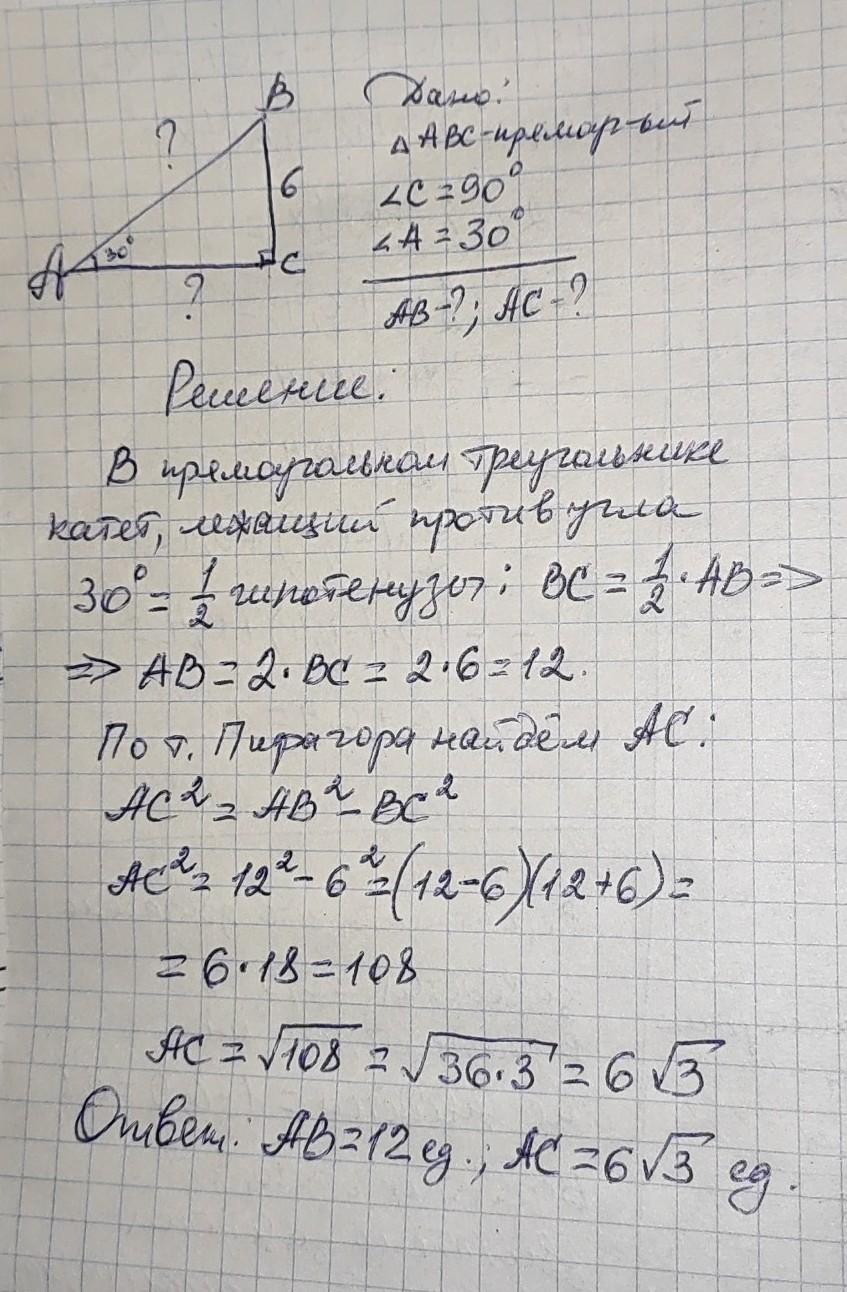 B
?
6
A 30° C
?
Дано:
△ABC-прямоуг-ый
∠C=90°
∠A=30°
AB-?; AC-?
Решение:
В прямоугольном треугольнике
катет, лежащий против угла
30° = 1/2 гипотенузы: BC = 1/2 · AB =>
=> AB = 2·BC = 2·6 = 12.
По т. Пифагора найдём AC:
AC² = AB² - BC²
AC² = 12² - 6² = (12-6)(12+6) =
= 6·18 = 108
AC = √108 = √36·3 = 6√3
Ответ: AB=12 ед.; AC=6√3 ед.